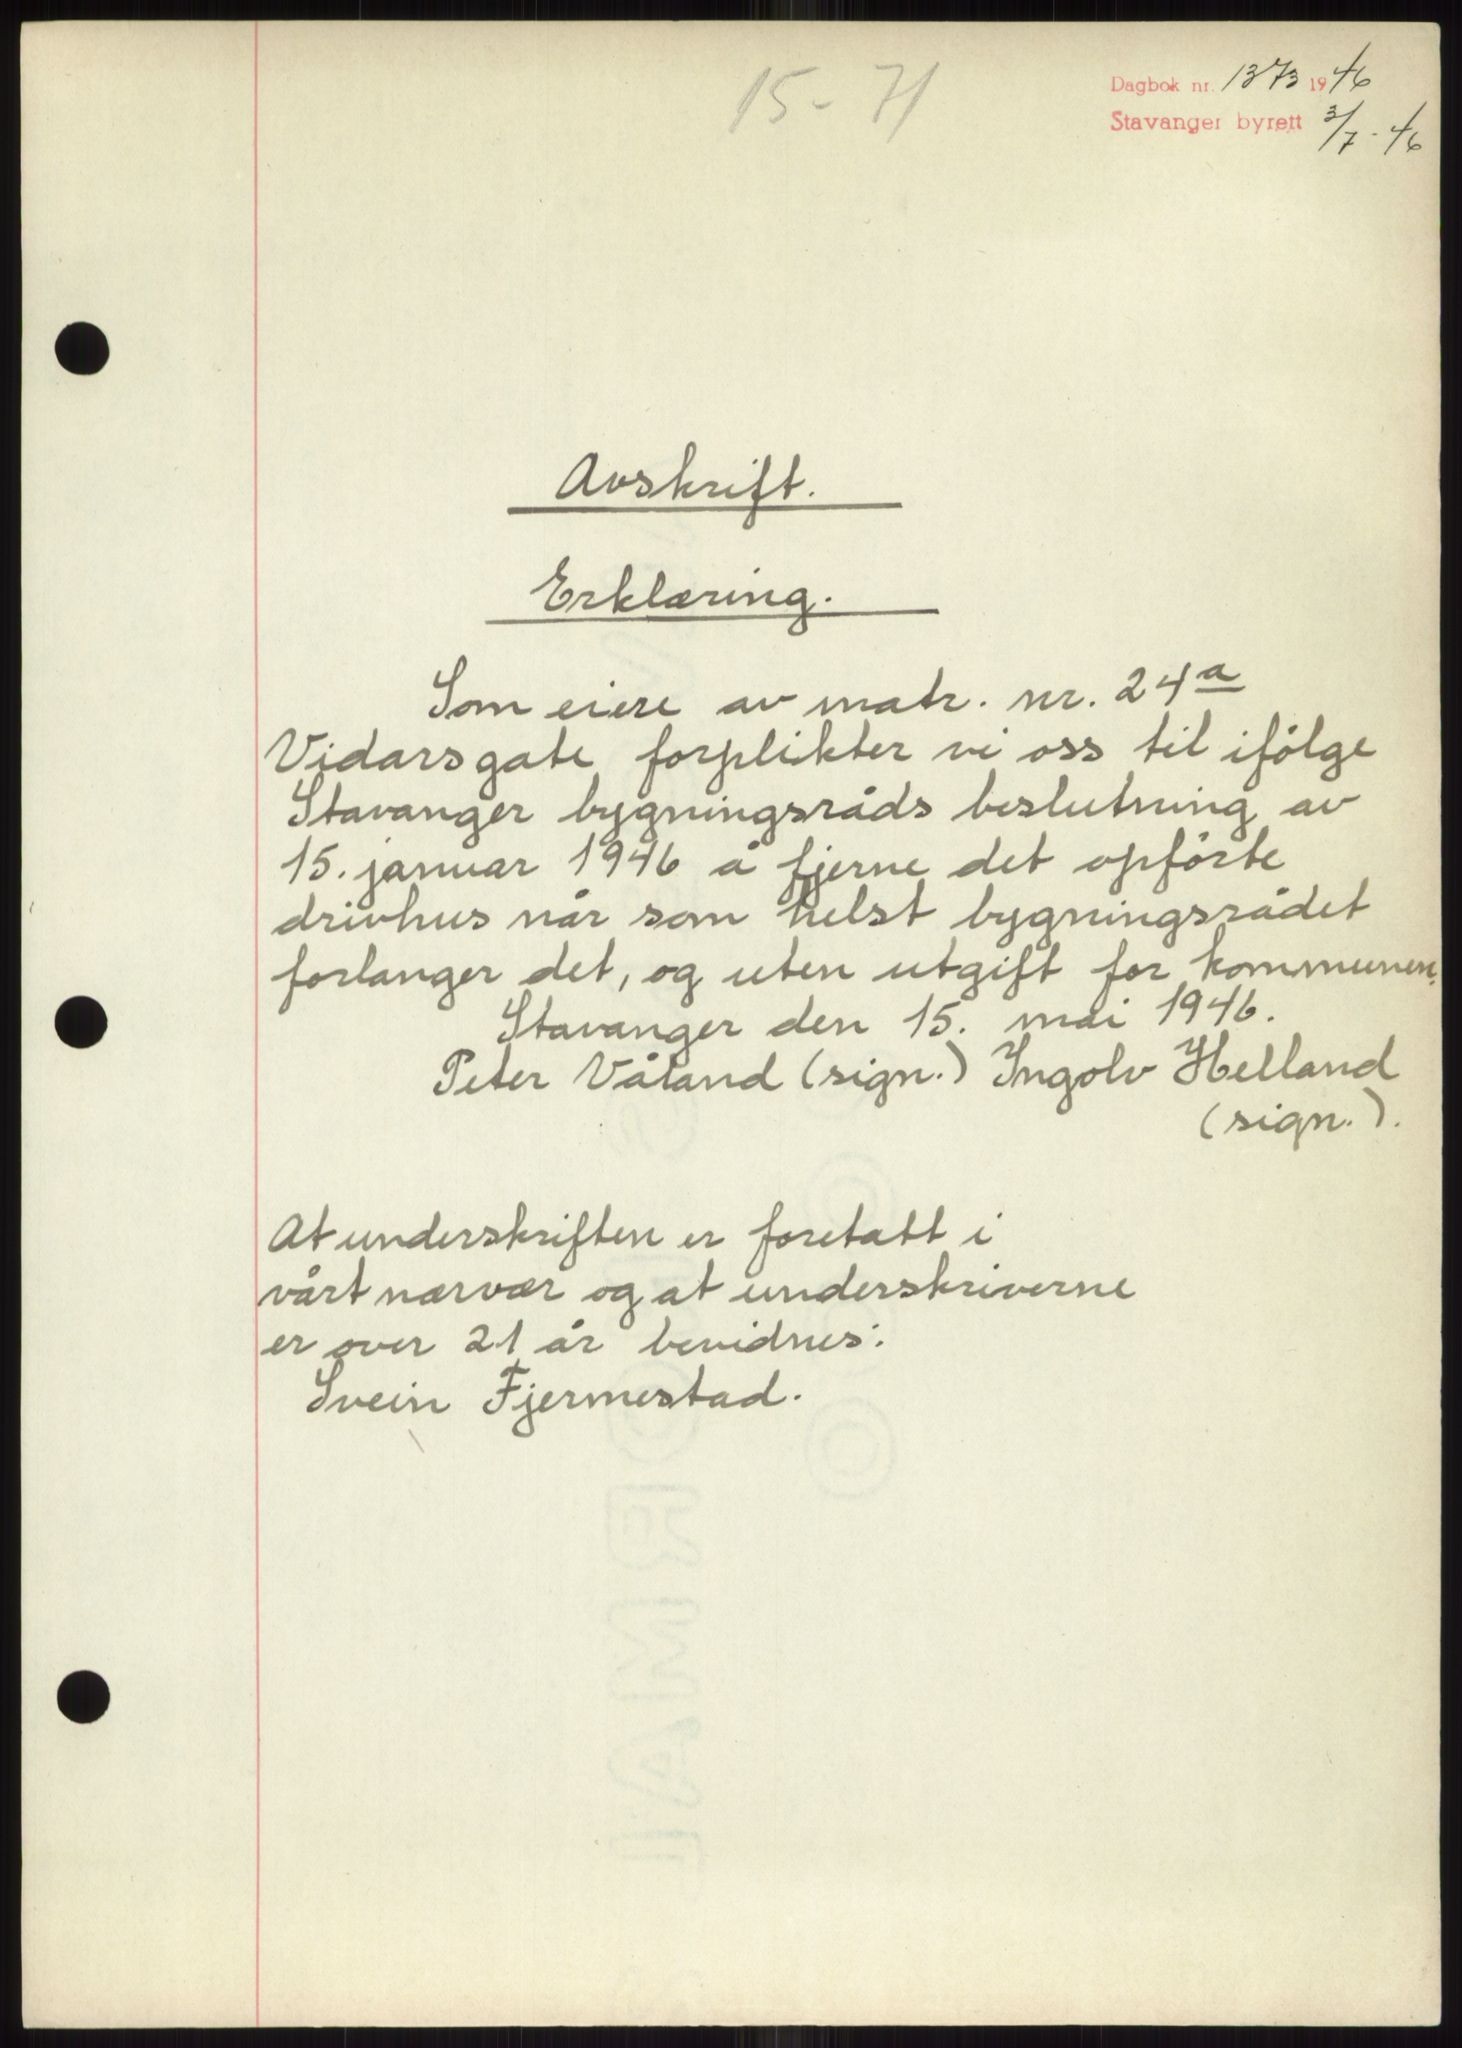 15 - 71
Dagbok nr. 1373 1946
Stavanger byrett 3/7 - 46
Avskrift.
Erklæring.
Som eiere av matr. nr. 24a
Vidarsgate forplikter vi oss til ifölge
Stavanger bygningsråds beslutning av
15. januar 1946 å fjerne det opförte
drivhus når som helst bygningsrådet
forlanger det, og uten utgift for kommunen.
Stavanger den 15. mai 1946.
Peter Våland (sign.) Ingolv Helland
(sign.).
At underskriften er foretatt i
vårt nærvær og at underskriverne
er over 21 år bevidnes:
Svein Fjermestad.